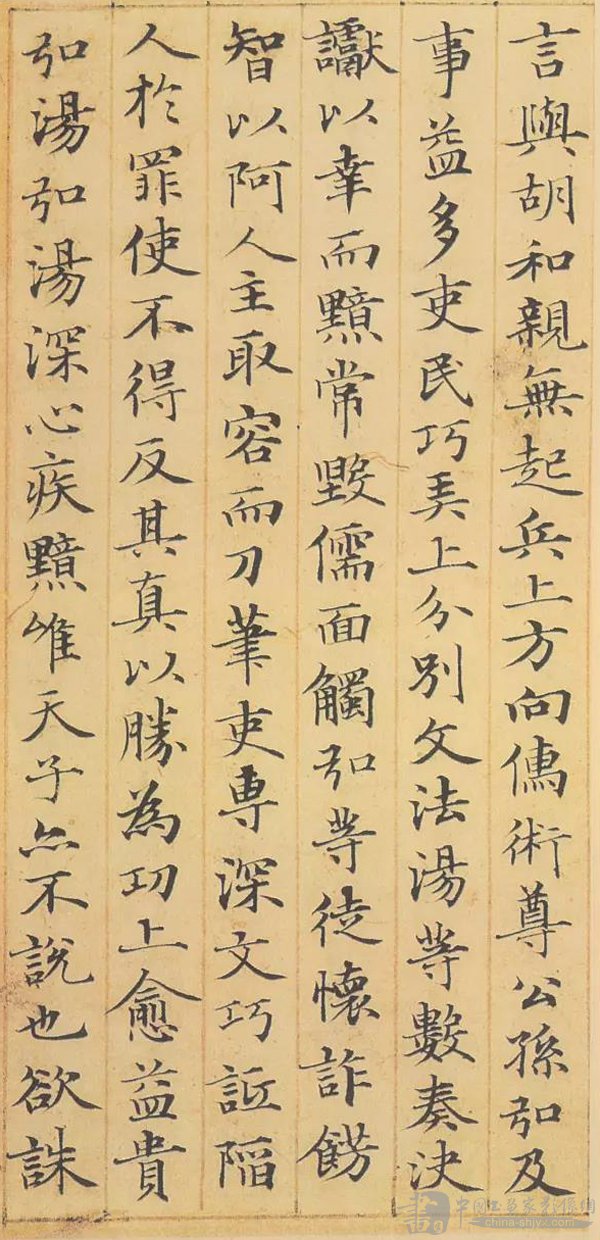 言與胡和親無起兵上方向儒術尊公孫弘及
事益多吏民巧弄上分別文法湯等數奏決
讞以幸而黯常毀儒面觸弘等徒懷詐餝
智以阿人主取容而刀筆吏專深文巧詆陷
人於罪使不得反其真以勝為功上愈益貴
弘湯弘湯深心疾黯唯天子亦不說也欲誅
中国书画家影像網
www.china-shjyx.com